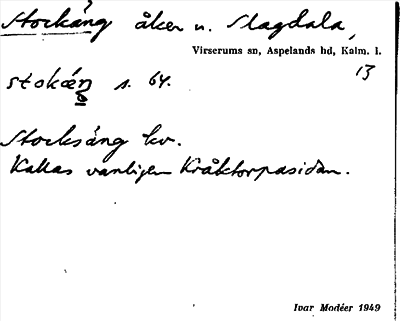 Stockäng åker u. Slagdala,
Virserums sn, Aspelands hd, Kalm. l.
13
stokäŋ s. 64.
Stocksäng kv.
Kallas vanligen Kråktorpasidan.
Ivar Modéer 1949